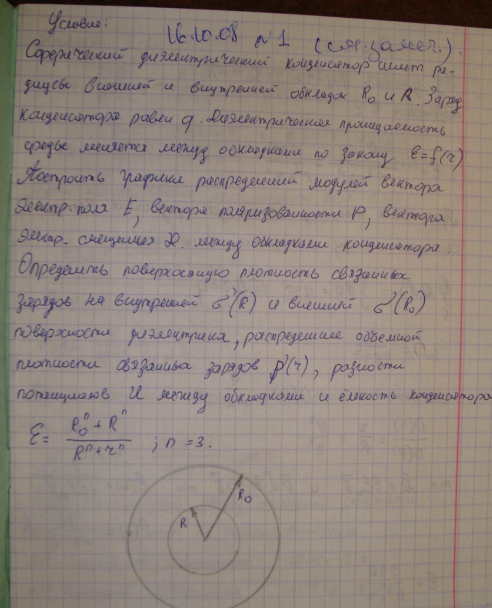 Условие:
16.10.08 №1 (см. замеч.).
Сферический диэлектрический конденсатор имеет ра-
диусы внешней и внутренней обкладок R₀ и R. Заряд
конденсатора равен q. Диэлектрическая проницаемость
среды меняется между обкладками по закону ε=f(r)
Построить графики распределений модулей вектора
электр. поля E, вектора поляризованности P, вектора
электр. смещения D. между обкладками конденсатора.
Определить поверхостную плотность связанных
зарядов на внутренней σ'(R) и внешней σ'(R₀)
поверхности диэлектрика, распределение объемной
плотности связанных зарядов ρ'(r), разности
потенциалов U между обкладками и ёмкость конденсатора
ε = (R₀ⁿ + Rⁿ)/(Rⁿ + rⁿ) ; n = 3.
R R₀